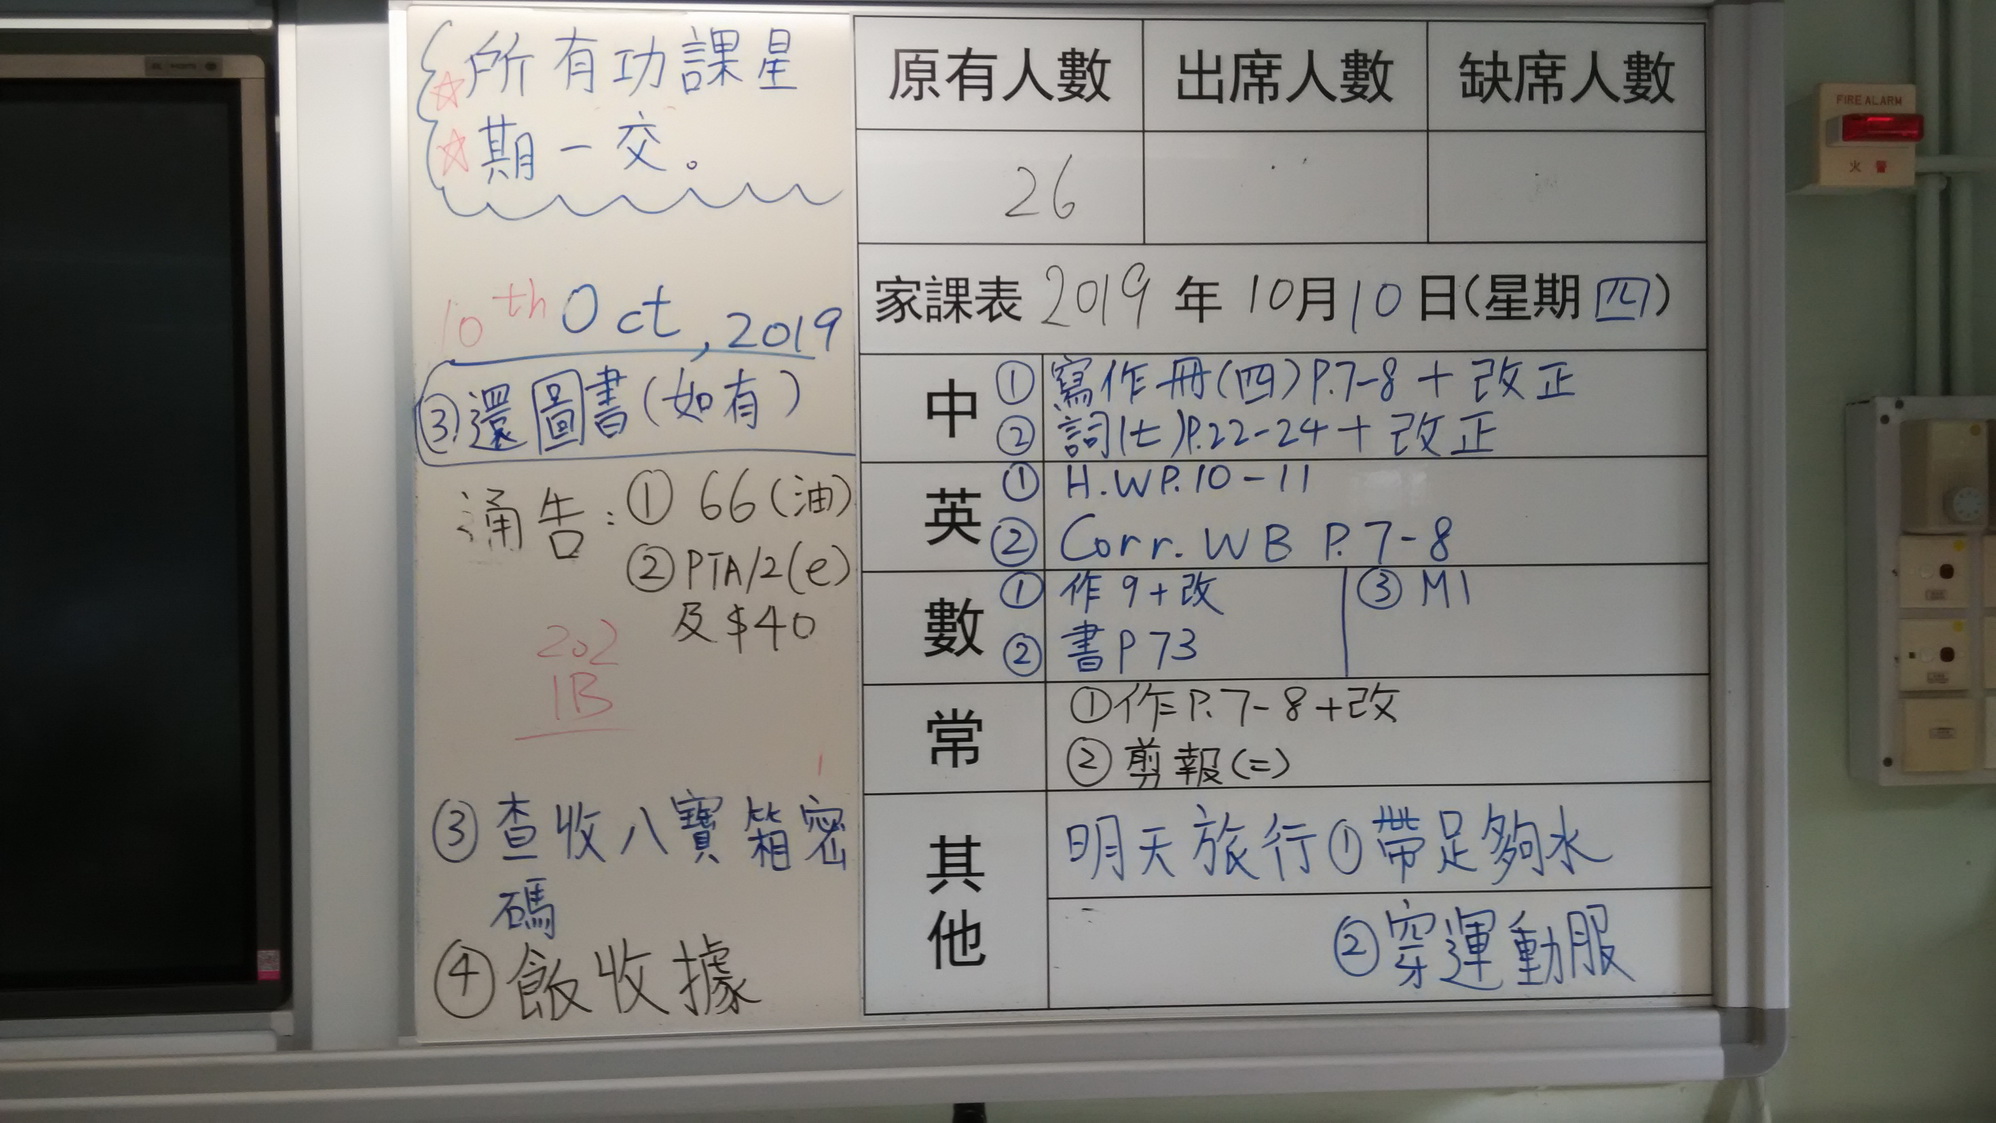 所有功課星
期一交。
10th Oct, 2019
③還圖書(如有)
通告：① 66(油)
② PTA/2(e)
及$40
202
1B
③ 查收八寶箱密
碼
④ 飯收據
原有人數 出席人數 缺席人數
26
家課表 2019 年 10月10日(星期四)
中 ① 寫作冊(四)P.7-8 + 改正
② 詞(七)P.22-24 + 改正
英 ① H.W P.10-11
② Corr. WB P.7-8
數 ① 作9+改 ③ M1
② 書P73
常 ①作P.7-8+改
② 剪報(二)
其他 明天旅行①帶足夠水
②穿運動服
FIRE ALARM
火警